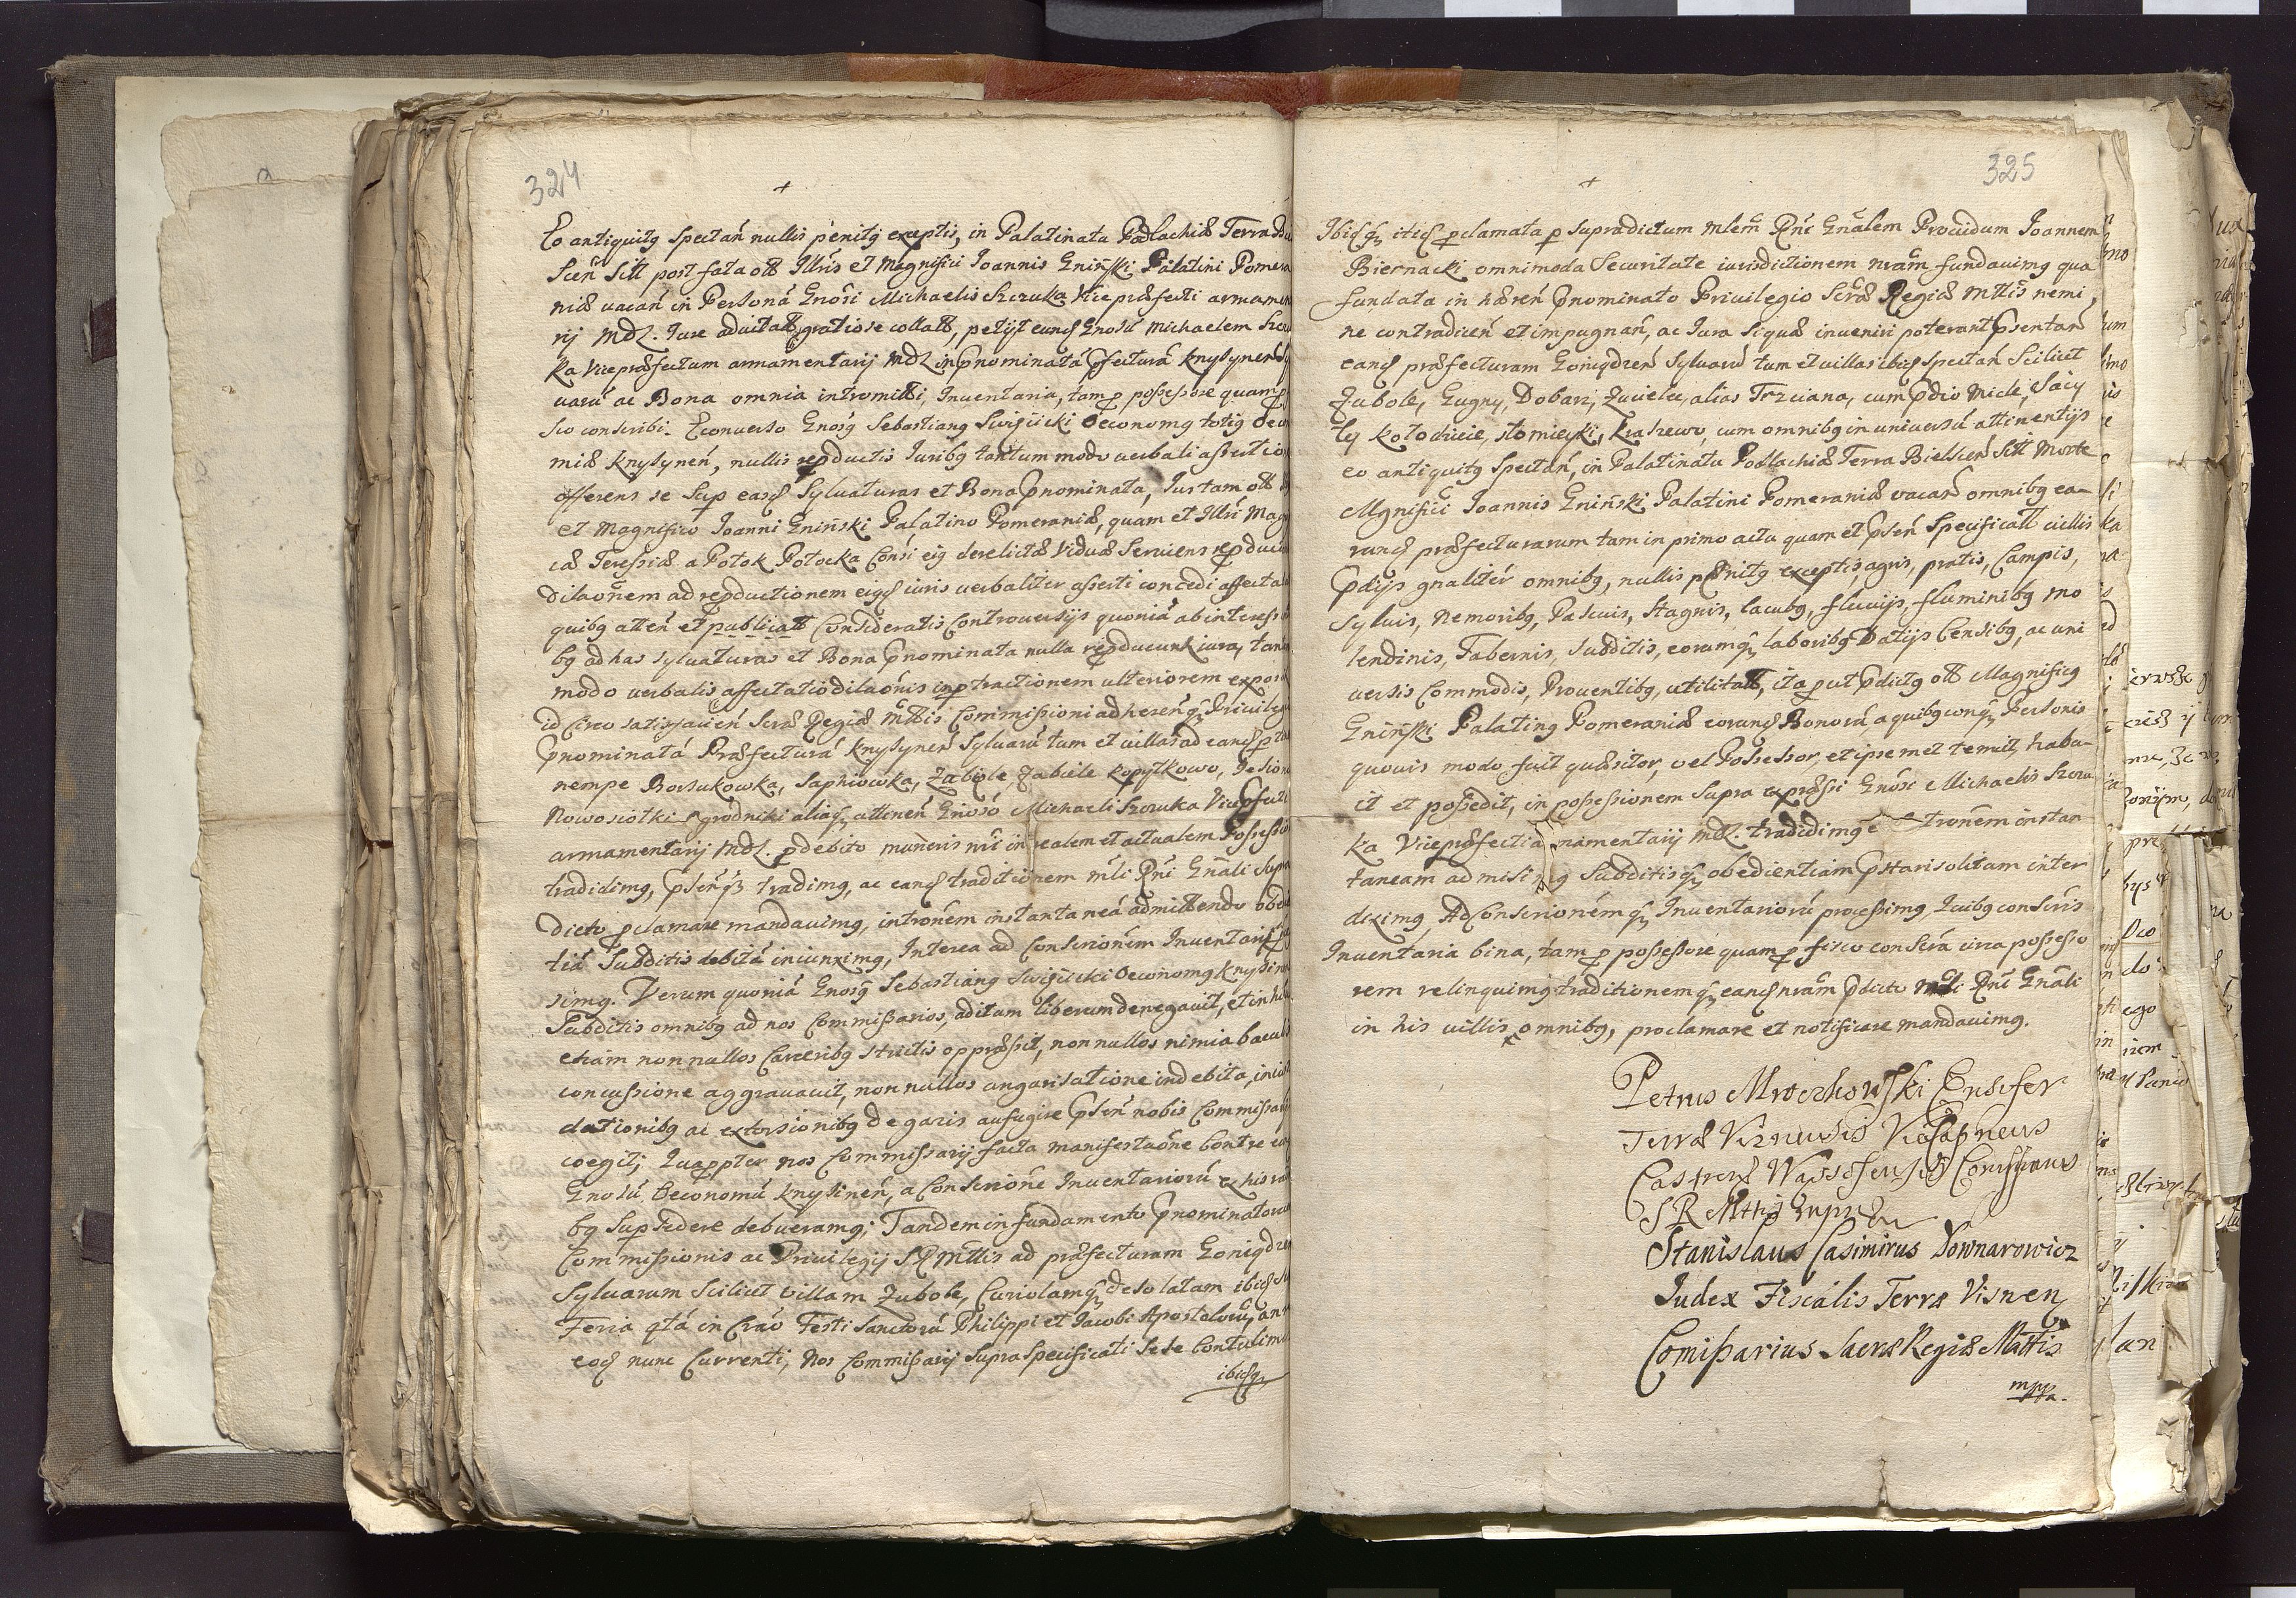 324
+
Eo antiquitg Spectań nullis penitg exceptis, in Palatinatu Podlachiæ Terra
Scen̄ Sitt post fata olt Illris et Magnifici Ioannis Gniński Palatini Pomera
niæ vacan̄ in Personā Gnosi Michaelis Szczuka Vice præfecti armamen
rij MDL. Iure aduitałt, gratiose collałt, petijt eundꝫ Gnosū Michaelem Szczu
ka Vicepræfectum armamentarij MDL in p̄nominatā p̄fecturā Knyszynen̄ Sy
uarū ac Bona omnia intromitti, Inventaria, tam p possessore quam p
sco conscribi. Econverso Gnosg Sebastiang Œconomg totig Œco
miæ Knyszynen̄, nullis reproductis Iuribg tantummodo verbali assertio
offerens se Sup easdꝫ Sylvaturas et Bona p̄nominata, Ius tam olt
et Magnifico Ioanni Gniński Palatino Pomeraniæ, quam et Illri Mag
cæ Teressiæ a Potok Potocka Consi eig derelictæ Viduæ Serviens reproduci
Dilaōnem ad reproductionem eigdꝫ iuris verbaliter asserti concedi affecta
quibg atten̄ et publicałt Consideratis Controversijs quoniā ab interess
bg ad has sylvaturas et Bona p̄nominata nulla reproducunt iura, tan
modo verbalis affectatio dilaōnis in ptractionem ulteriorem expon
id circo satisfacien̄ Scræ Regiæ Mttis Commissioni adheren̄q Privileg
p̄nominatā Præfecturā Knyszynen̄ Sylvarū tum et villas ad eandꝫ
nempe Borsukowka, Saphiowka, Zabiele Zabiele Kopytkowo, Jesion
Nowosiołki Ogrodniki aliasq attinen̄ Gnoso Michaeli Szczuka Vicep̄fect
armamentarij MDL. p debito muneris nri in realem et actualem Possessio
tradidimg, p̄sen̄q tradimg, ac eandꝫ traditionem mli Rni Gnāli Supra
dicto pclamare mandavimg, intronēm instantaneā admittendo obed
tiā Subditis debitā iniunximg, Interea ad Conscrionēm Inventarij
simg. Verum quoniā Gnosg Sebastiang Œconomg Knyszyn
Subditis omnibg ad nos Commissarios, aditum liberum denegavit, et in h
etiam nonnullos Carceribg strictis oppræssit, nonnullos nimia bacul
concussione aggravavit, nonnullos angarisatione indebita,
dationibg ac extorsionibg de garis aufugire p̄sen̄ nobis Commissarijs
coegit; Quappter nos Commissarij facta manifestaōne Contra eu
Gnosū Œconomū Knyszinen̄, a Conscrionē Inventariorū ex his
bg Supsedere debueramg; Tandem in fundamento p̄nominatoru
Commissionis ac Privilegij SR Mttis ad præfecturam Goniądzen
Sylvarum Scilicet villam Zubole, Curiolamq desolatam ibidꝫ
Feria qtā in Crāo Festi Sanctorū Philippi et Jacobi Apostolorū, an
eodꝫ nunc Currenti, Nos Commissarij Supra Specificati Sese Contulimu
ibidꝫq
325
+
Ibidꝫq itidꝫ pclamata p Supradictum Mlem Rni Gnālem Providum Ioannem
Biernacki omnimoda Securitate iurisdictionem nrām fundavimg qua
fundata in hæren̄ p̄nominato Privilegio Scræ Regiæ Mttis nemi
ne contradicen̄ et impugnan̄, ac Iura Siquæ inveniri poterant p̄sentan̄
eandꝫ præfecturam Goniądzen̄ Sylvarū tum et villas ibidꝫ Spectan̄ Scilicet
Zubole, Gugny, Dobarz, Zuciele, alias Trzciana, cum p̄dio Micle,
Kołodzieie, słomieyki, Kraszewo, cum omnibg in universū attinentijs
eo antiquitg Spectan̄, in Palatinatu Podlachiæ Terra Bielscen̄ Sitt Morte
Mgnifici Ioannis Gniński Palatini Pomeraniæ vacan̄ omnibg ea-
rundꝫ præfecturarum tam in primo actu quam et p̄sen̄ Specificałt villis
p̄dijs gnaliter omnibg, nullis pænitg exceptis, agris, pratis, Campis,
Sylvis, Nemoribg, Pascuis, Stagnis, lacubg, fluvijs, fluminibg mo
lendinis, Tabernis, Subditis, eorumq laboribg Datijs Censibg, ac uni
versis Commodis, Proventibg, utilitałt, ita put p̄dictg olt Magnificg
Gniński Palating Pomeraniæ eorundꝫ Bonorū, a quibg cunq Personis
quovis modo fuit quæsitor, vel Possessor, et ipsemet tenuit, habu-
it et possedit, in possessionem Supra expræssi Gnosi Michaelis Szczu
ka Vicepræfecti armamentarij MDL. tradidimg intronēm instan
taneam admisimg Subditisq obedientiam p̄stari solitam inter
diximg, Ad Conscrionēmq Inventariorū processimg, Quibg conscris
Inventaria bina, tam p possessore quam p fisco conscrā circa possesso
rem relinquimg traditionemq eandꝫ nrām p̄dicto Mli Rni Gnāli
in his villis omnibg, proclamare et notificare mandavimg.
Petrus Mroczkowski Ensifer
Terræ Viznensis Vicecapneus
Castren̄ Wąssosensis Commssarius
S R Mttis
Stanislaus Casimirus Downarowicz
Iudex Fiscalis Terræ Visnen
Comissarius Sacræ Regiæ Mttis
mppa.